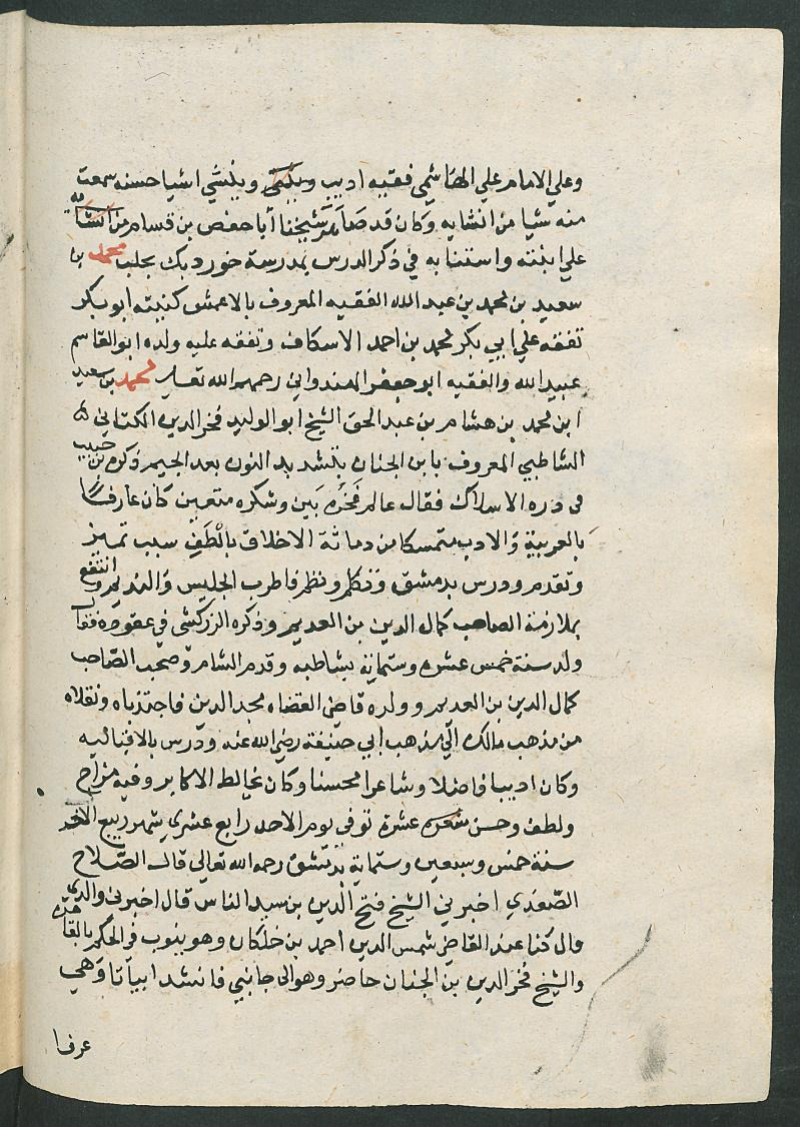 وعلي الامام علي الهاشمي فقيه اديب وينشي اشيا حسنه سمعت
منه شيا من انشايه وكان قد صاهر شيخنا أبا حفص بن قسام من انشأ
علي ابنته واستنابه في ذكر الدرس بمدرسة خورد بك بحلب محمد بن
سعيد بن محمد بن عبد الله الفقيه المعروف بالاعمش كنيته ابو بكر
تفقه علي ابي بكر محمد بن احمد الاسكاف وتفقه عليه ولده ابو القاسم
عبيد الله والفقيه ابو جعفر الهندواني رحمهم الله تعالي محمد بن سعيد
ابن محمد بن هشام بن عبد الحق الشيخ ابو الوليد فخر الدين الكتاني
الشاطبي المعروف بابن الجنان بتشديد النون بعد الجيم ذكره بن حبيب
في دره الاسلاك فقال عالم فخره بين وشكره متعين كان عارفا
بالعربية والادب متمسكا من دماثة الاخلاق بالطف سبب تميز
وتقدم ودرس بدمشق وتكلم ونظم فاطرب الجليس والنديم وانتفع
بملازمة الصاحب كمال الدين بن العديم وذكره الزركشي في عقوده فقال
ولد سنة خمس عشره وستماية بشاطبه وقدم الشام وصحب الصاحب
كمال الدين بن العديم وولده قاضي القضاه مجد الدين فاجتذباه ونقلاه
من مذهب مالك الي مذهب أبي حنيفة رضي الله عنه ودرس بالاقباليه
وكان اديبا فاضلا وشاعرا محسنا وكان يخالط الاكابر وفيه مزاح
ولطف وحسن عشرة توفي يوم الاحد رابع عشري شهر ربيع الاخر
سنة خمس وسبعين وستماية بدمشق رحمه الله تعالي قال الصلاح
الصفدي اخبرني الشيخ فتح الدين بن سيد الناس قال اخبرني والدي
قال كنا عند القاضي شمس الدين احمد بن خلكان وهو ينوب في الحكم بالقاهره
والشيخ فخر الدين بن الجنان حاضر وهو الى جانبي فانشد ابياتا وهي
عرف ا